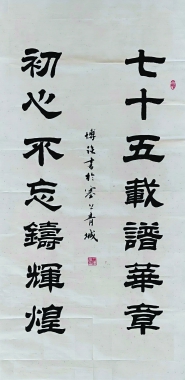 七十五載譜華章
初心不忘鑄輝煌
書於
青城